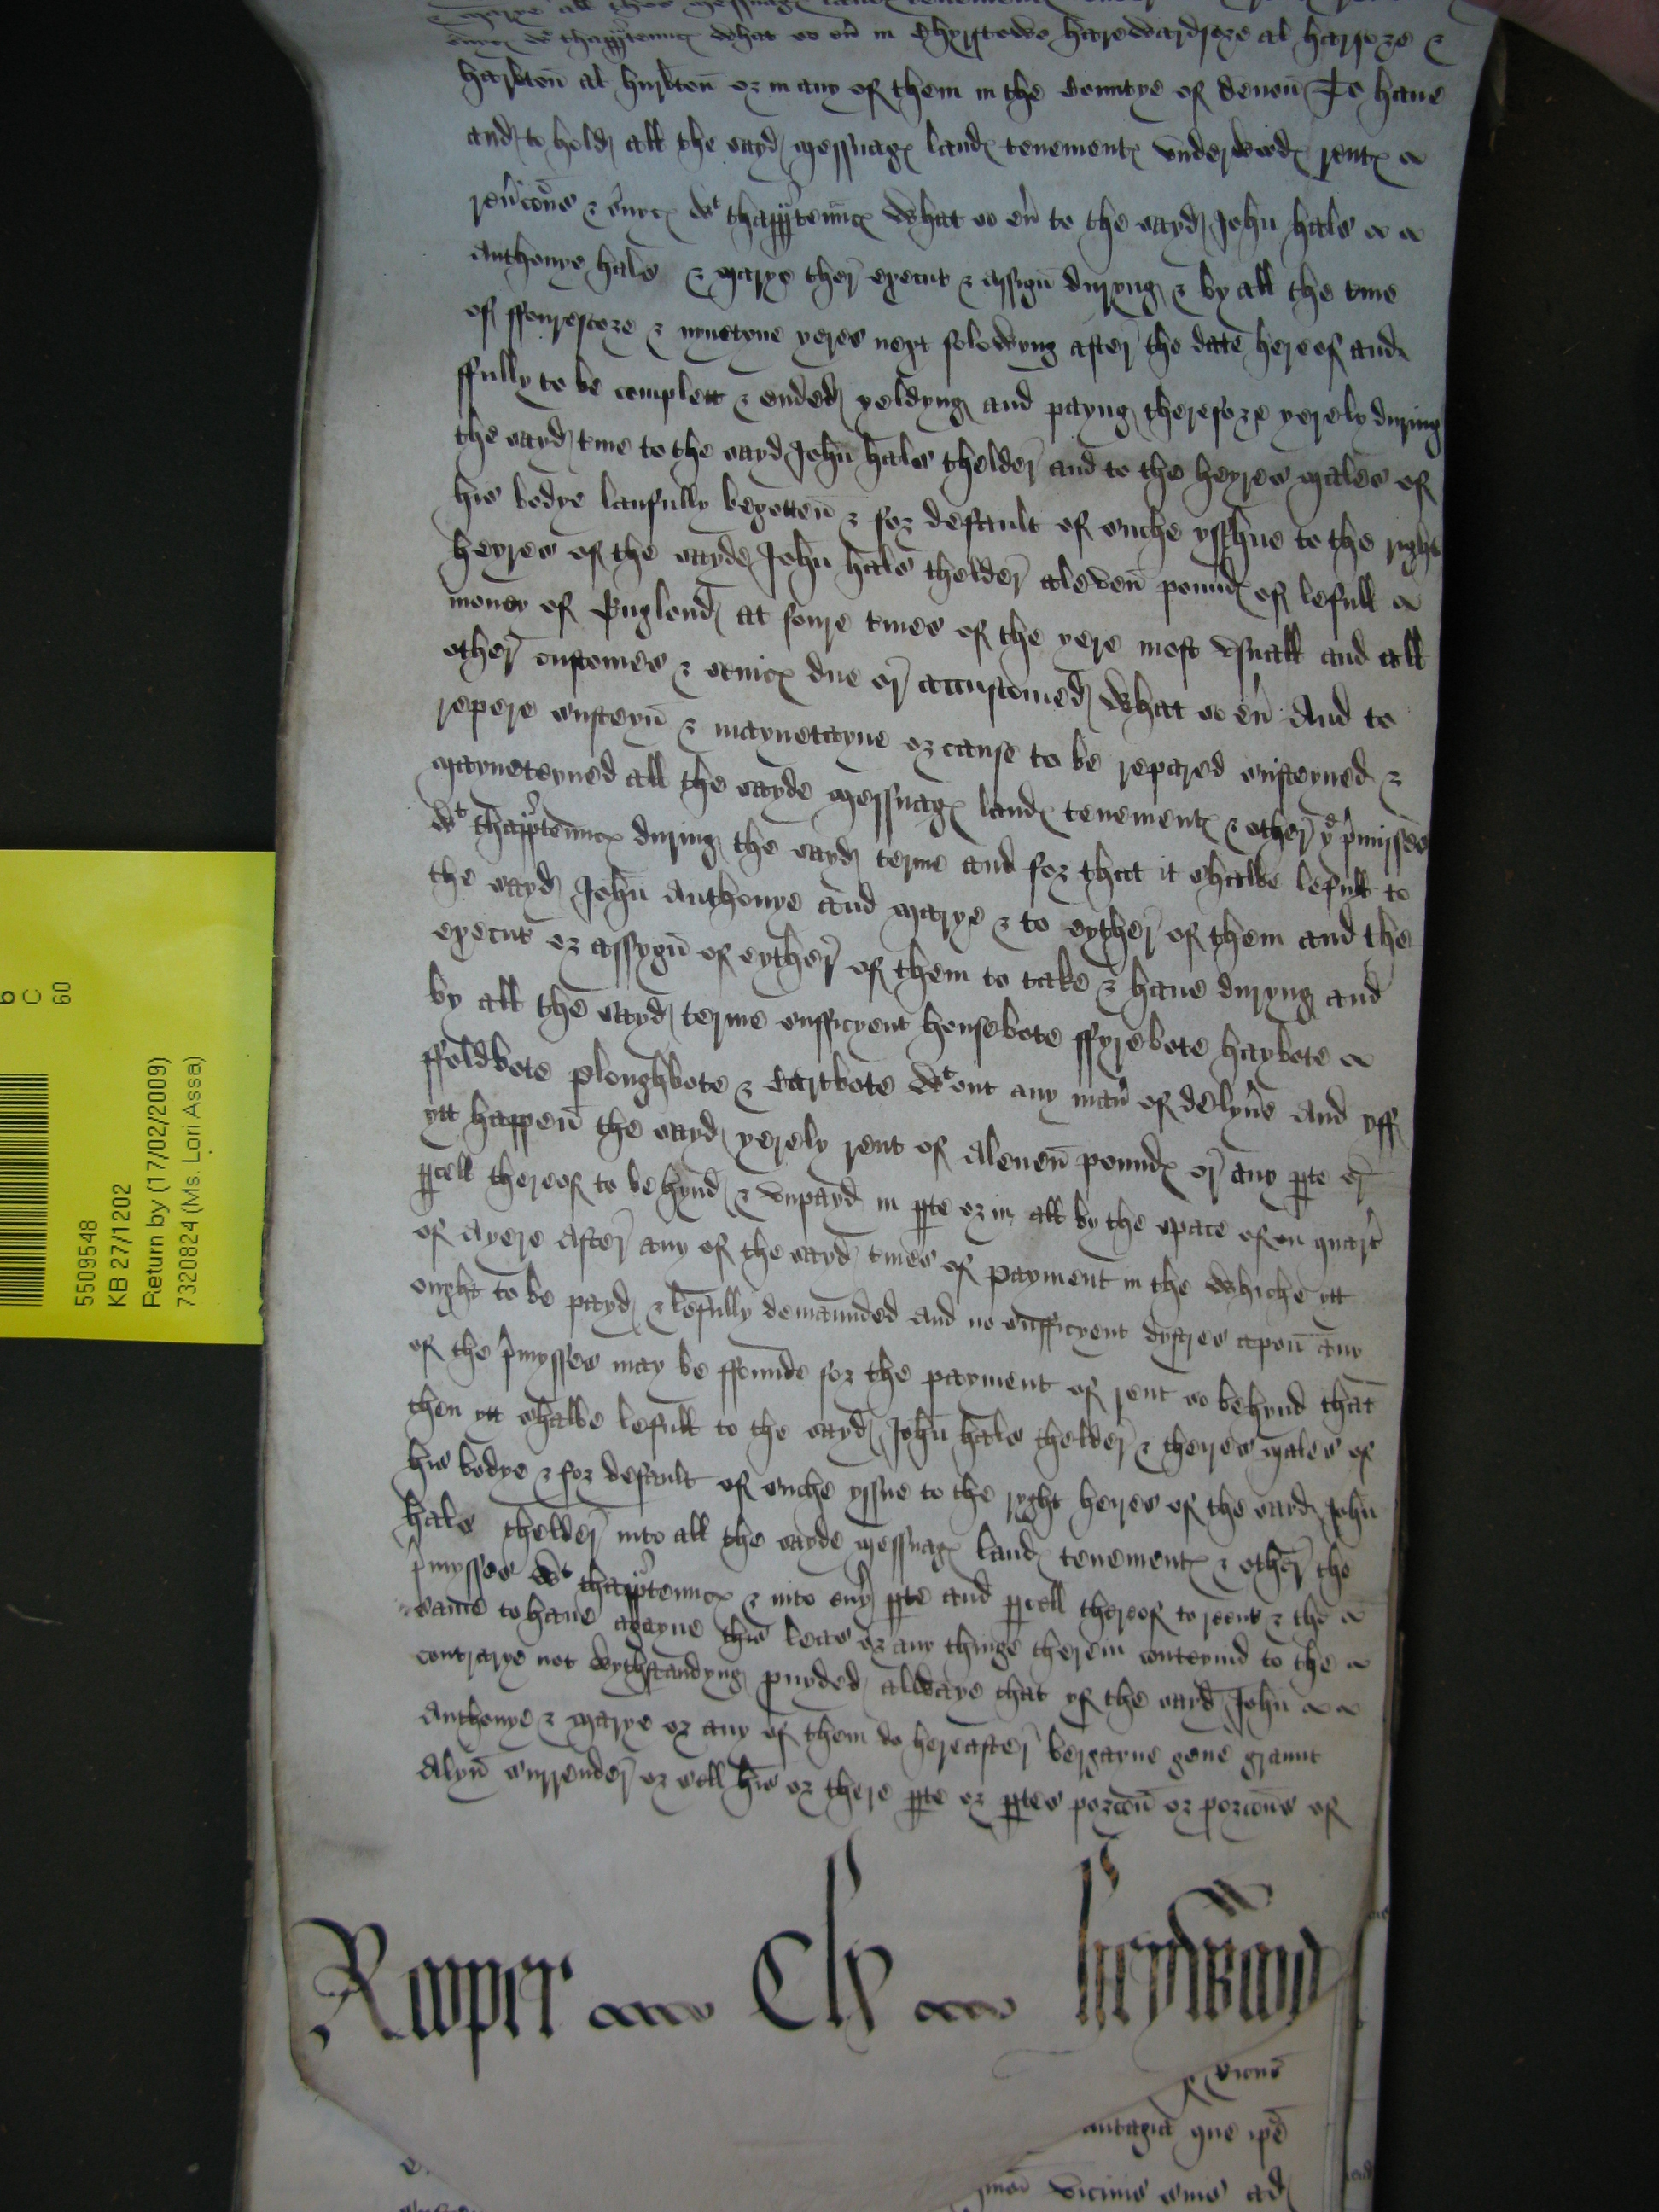 marye all thos messuagℯ landℯ tenementℯ
what so eũ in Chyrstowe harewardsore al harsore &
harleton al hurleton or in any of them in the Countye of devoñ To have
and to hold all the sayd messuagℯ landℯ tenementℯ underwodℯ rentℯ
reṽcoñs & s̃vycℯ wt thapp̃tenñcℯ what so eṽ to the sayd John hals
Anthonye hals & marye ther execut & assigñ duryng & by all the tme
of ffourescore & nynetyne yeres next folowyng after the date hereof and
ffully to be complett & ended yeldyng and payng therefore yerely during
the sayd tme to the sayd John hals thelder and to the heyres males of
his bodye laufully begotteñ & for default of suche ysshue to the right
heyres of the sayde John hals thelder aleveñ poundℯ of lefull
money of Englond at foure tmes of the yere most usuall and all
other customes & s̃vicℯ due or accustomed what so eṽ And to
repere susteyñ & maynetayne or cause to be repared susteyned &
mayneteyned all the sayde messuagℯ landℯ tenementℯ & other ye p̃misses
wt thapp̃tenñcℯ during the sayd terme and for that it shalbe lefull to
the sayd John Anthonye and marye & to eyther of them and the
execut or assygñ of eyther of them to take & have duryng and
by all the sayd terme sufficyent housebote ffyrebote haybote
ffoldbote ploughbote & Cartbote wtout any mañ of delyũe And yff
ytt happeñ the sayd yerely rent of Aleveñ poundℯ or any pte or
pcell thereof to be hynd & unpayd in pte or in all by the space of oñ quart
of A yere After any of the sayd tmes of payment in the whiche ytt
ought to be payd & lefully demaunded And no sufficyent dystres apoñ any
of the p̃mysses may be ffounde for the payment of rent so behynd that
then ytt shalbe lefull to the sayd John hals thelder & theires males of
his bodye & for default of suche yssue to the ryght heires of the sayd John
hals thelder into all the sayde messuagℯ landℯ tenementℯ & other the
p̃mysses wt thapp̃tenñcℯ & into eṽy pte and pcell thereof to reent & the
same to have agayne this leas or any thinge therein conteynid to the
contrarye not wythstandyng pvyded allwaye that yf the sayd John
Anthonye & marye or any of them do hereafter bergayne geve graunt
Alyñ surrender or sell his or there pte or ptes porcoñ or porcoñs of
Rooper
vicinis suis ad
5509548
KB 27/1202
Return by (17/02/2009)
7320824 (Ms. Lori Assa)
6
C
60